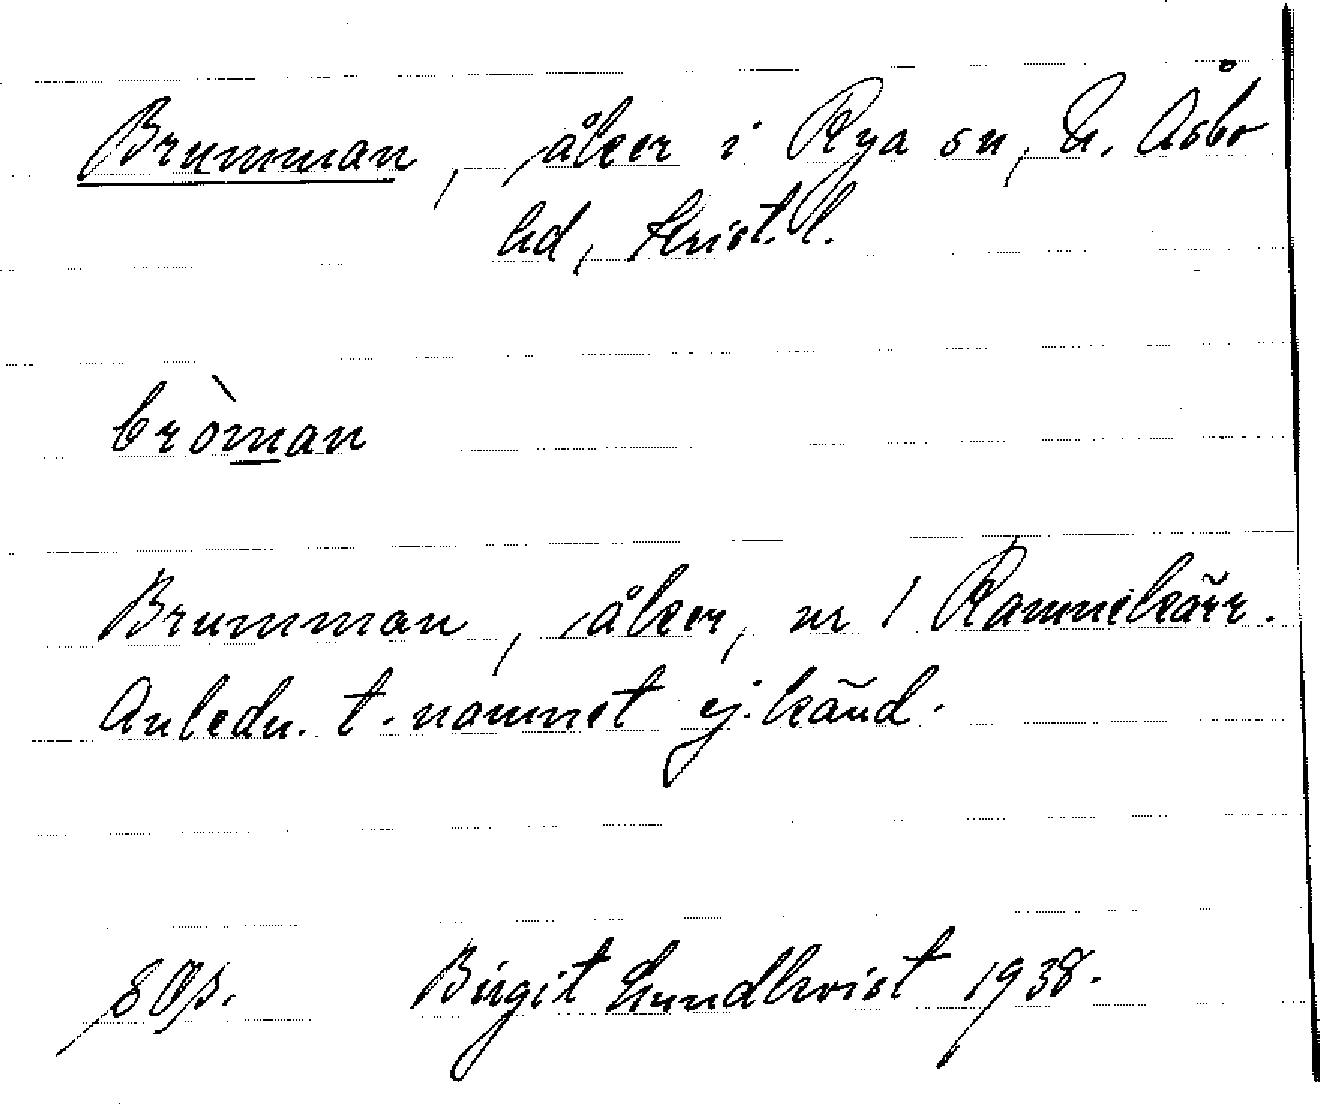 Brumman, åker i Rya sn, N. Åsbo
hd, Krist. l.
bròman
Brumman, åker, nr 1 Ramnekärr.
Anledn. t. namnet ej känd.
Birgit Lundkvist 1938.